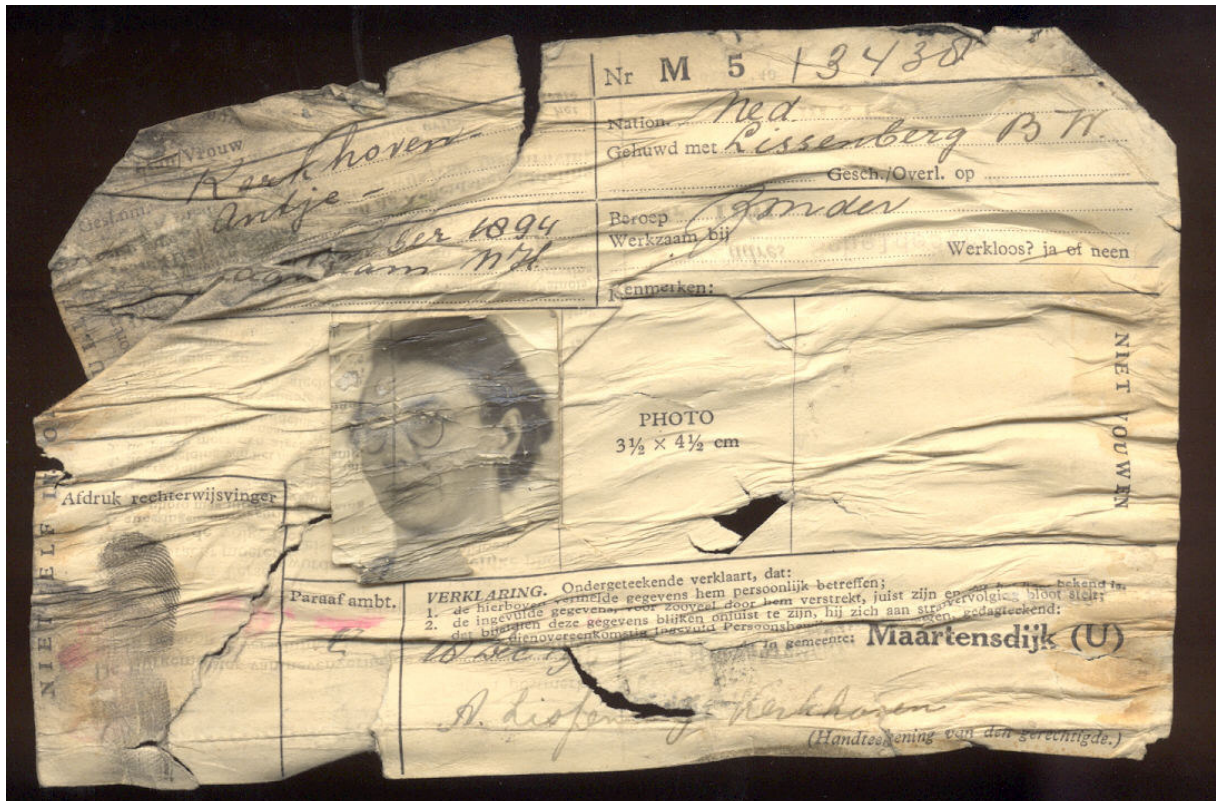 Nr M 5 13430
Man/Vrouw
Kerkhoven-
Antje-
Geslnm.
ber 1894
N.H.
Nation. Ned.
Gehuwd met Lissenberg B W.
Gesch./Overl. op
Beroep Zonder
Werkzaam bij
Werkloos? ja of neen
Kenmerken:
PHOTO
3½ × 4½ cm
NIET VOUWEN
NIET ZELF IN
Afdruk rechterwijsvinger
Paraaf ambt.
VERKLARING. Ondergeteekende verklaart, dat:
1. de hierboven vermelde gegevens hem persoonlijk betreffen;
2. de ingevulde gegevens, voor zooveel door hem verstrekt, juist zijn en bekend is,
dat bijaldien deze gegevens blijken onjuist te zijn, hij zich aan vervolging bloot stelt;
dienovereenkomstig ingevuld gedagteekend:
in gemeente: Maartensdijk (U)
18 Dec
A. Kerkhoven
(Handteekening van den gerechtigde.)